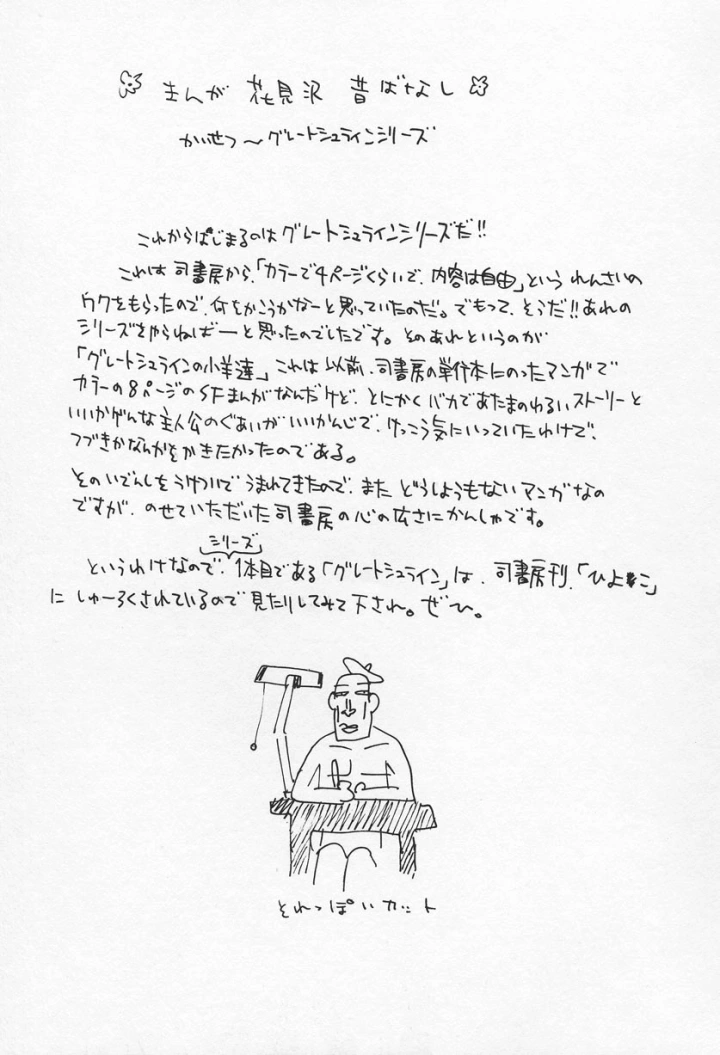 まんが 花見沢 昔ばなし
かいせつ～グレートシュラインシリーズ
これからはじまるのはグレートシュラインシリーズだ!!
これは司書房から、「カラーで4ページくらいで、内容は自由」という れんさいの
ワクをもらったので、何をかこうかなーと思っていたのだ。でもって、そうだ!!あれの
シリーズをやらねばーと思ったのでしたです。そのあれというのが
「グレートシュラインの小羊達」これは以前、司書房の単行本にのったマンガで
カラーの8ページのSFまんがなんだけど、とにかくバカであたまのわるいストーリーと
いいかげんな主人公のぐあいがいいかんじで、けっこう気にいっていたわけで、
つづきかなんかをかきたかったのである。
そのいでんしをうけついでうまれてきたので、また どうしようもないマンガなの
ですが、のせていただいた司書房の心の広さにかんしゃです。
シリーズ
というわけなので、1本目である「グレートシュライン」は、司書房刊、「ひよこ」
に しゅーろくされているので見たりしてみて下され。ぜひ。
それっぽいカット